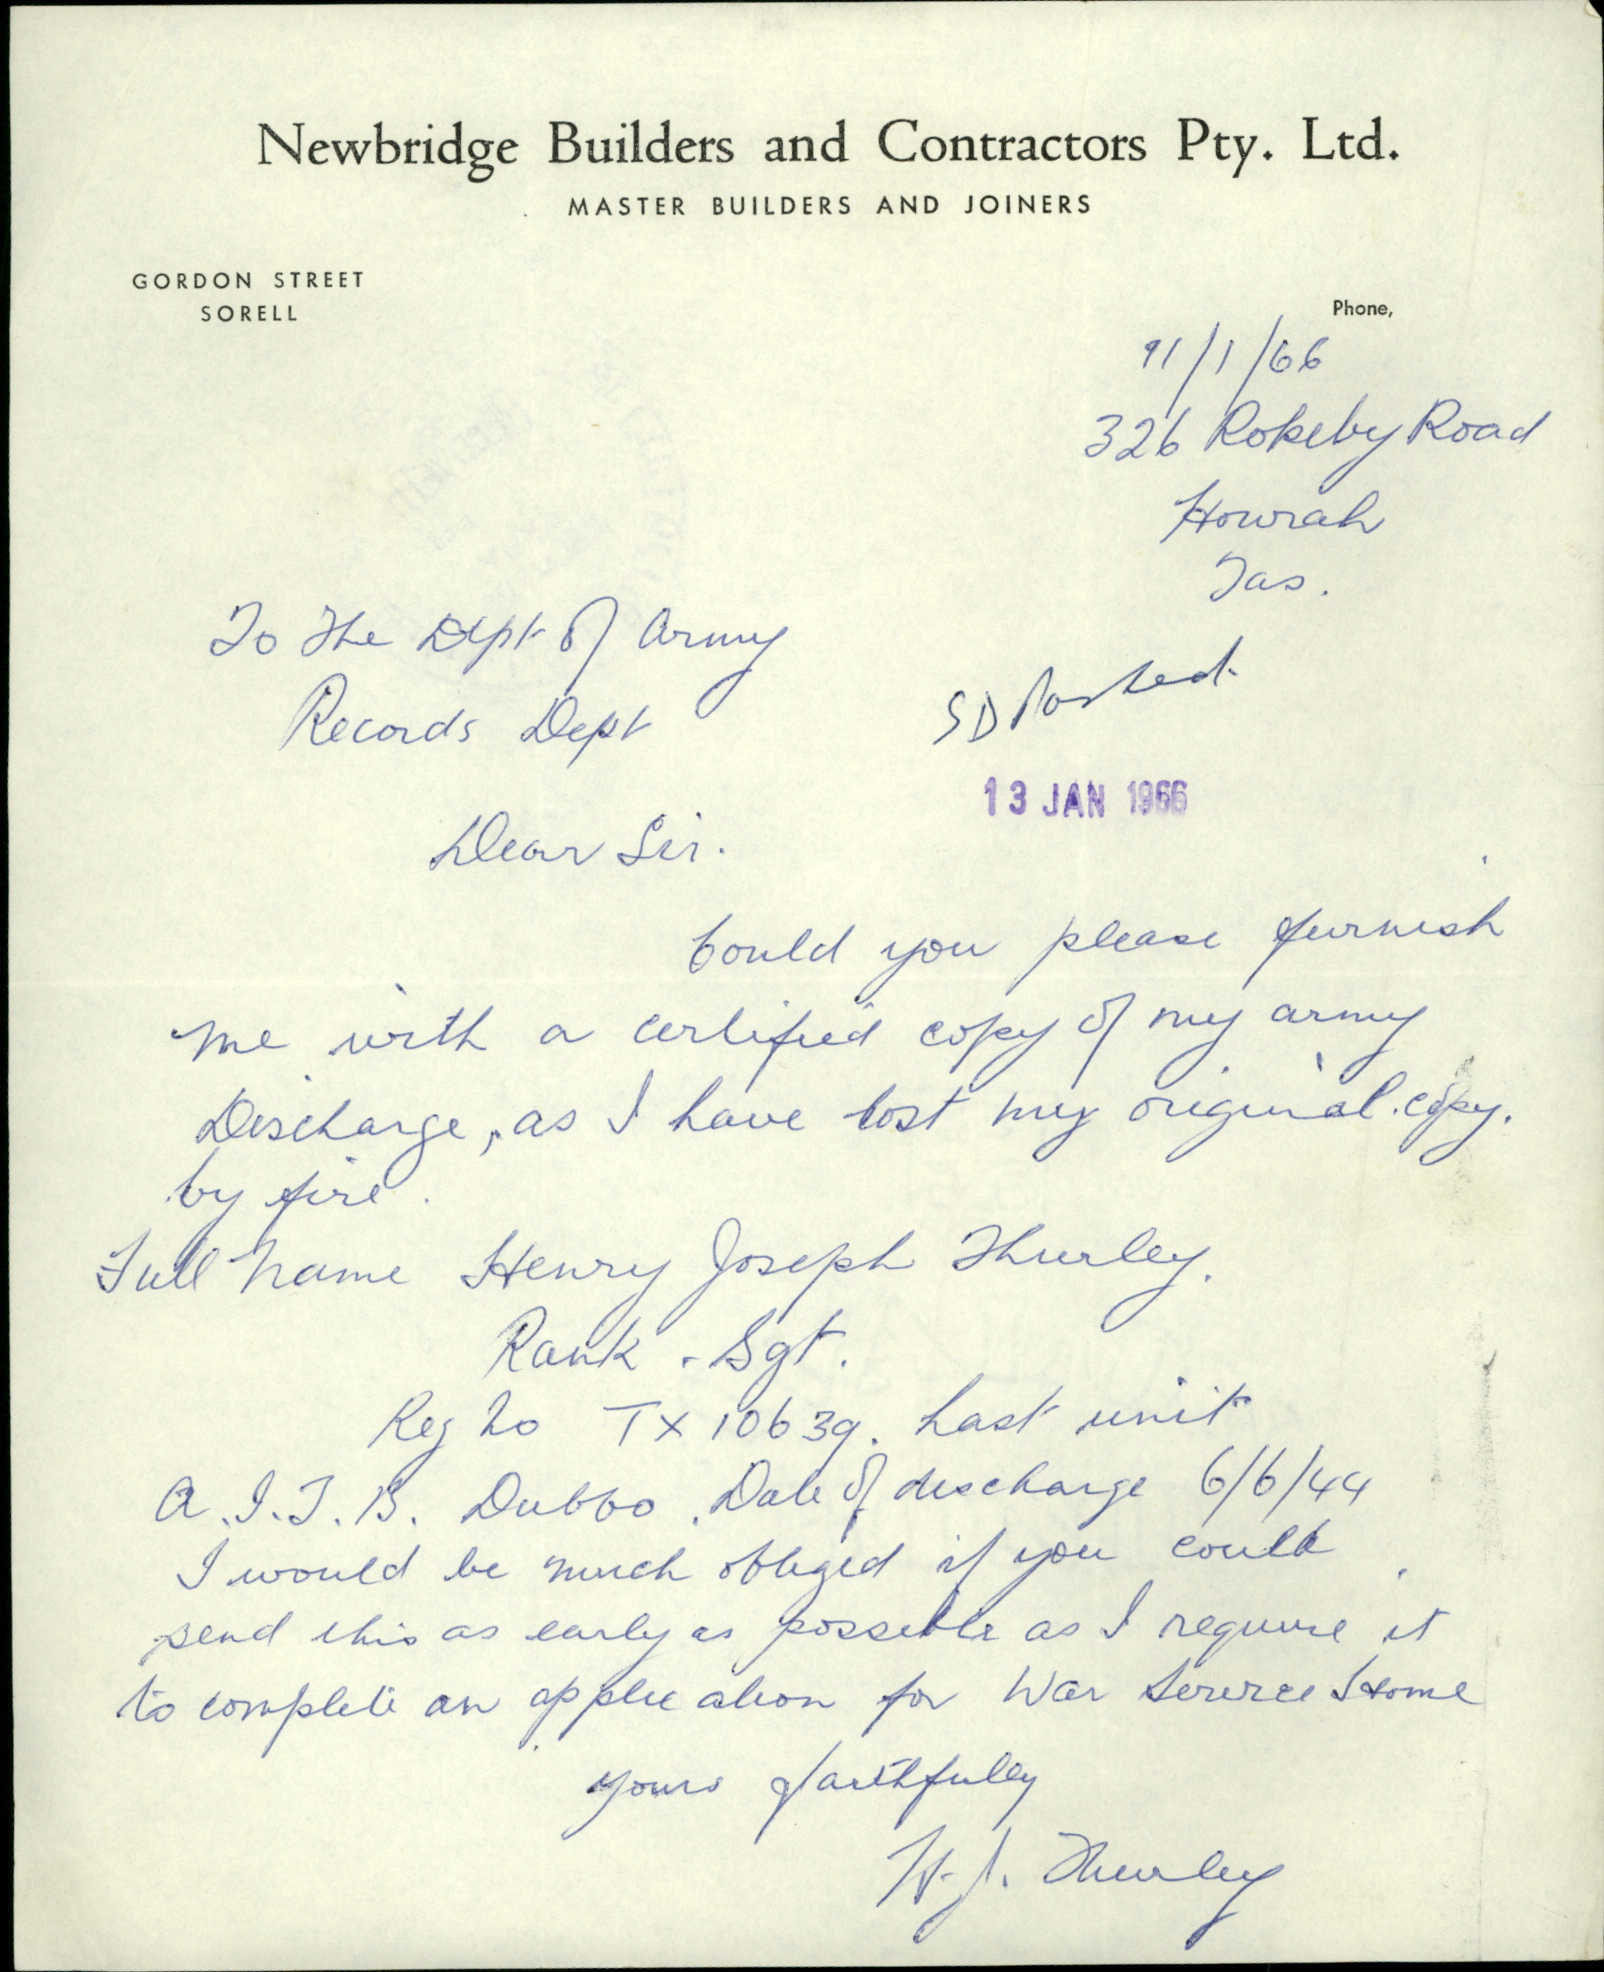 Newbridge Builders and Contractors Pty. Ltd.
MASTER BUILDERS AND JOINERS
GORDON STREET
SORELL
Phone,
11/1/66
326 Rokeby Road
Howrah
Tas.
To The Dept of Army
Records Dept
SD Posted.
13 JAN 1966
Dear Sir.
Could you please furnish
me with a certified copy of my army
Discharge, as I have lost my original copy.
by fire.
Full Name Henry Joseph Thurley.
Rank - Sgt.
Reg No TX 10639. Last unit
A.I.T.B. Dubbo. Date of discharge 6/6/44
I would be much obliged if you could
send this as early as possible as I require it
to complete an application for War Service Home
yours faithfully
H.J. Thurley